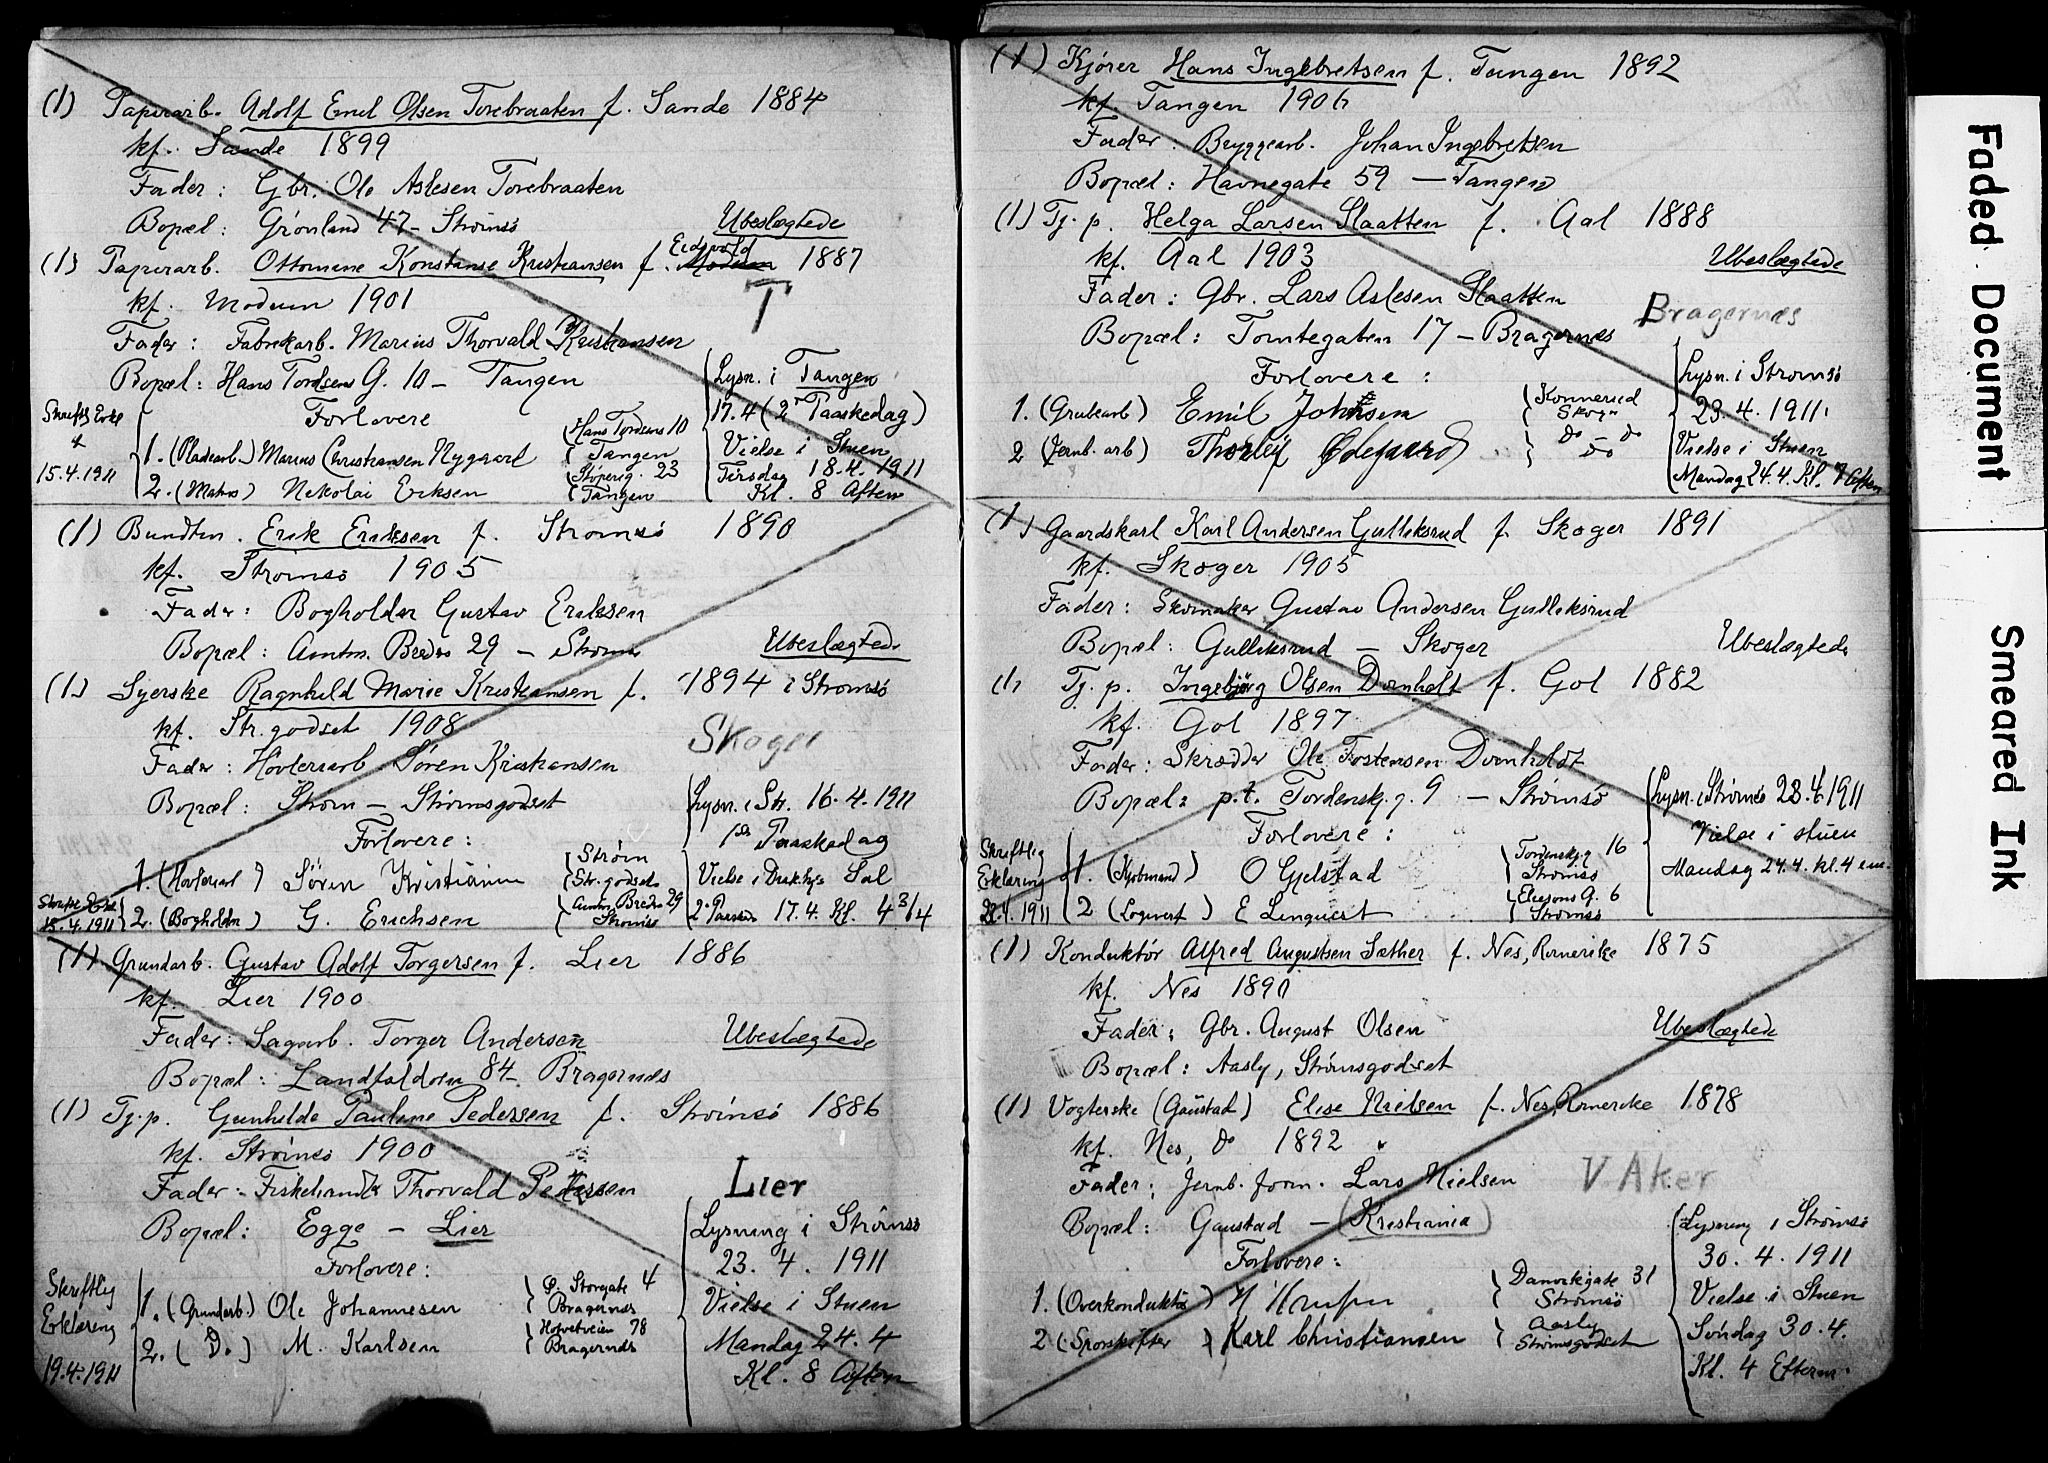 (1) Papirarb. Adolf Emil Olsen Torebraaten f. Sande 1884
kf. Sande 1899
Fader : Gbr. Ole Aslesen Torebraaten
Bopæl : Grønland 47 - Strømsø
Ubeslægtede
(1) Papirarb. Ottomine Konstanse Kristiansen f. Eidsvold Modum 1887
kf. Modum 1901
T
Fader : Fabrikarb. Marius Thorvald Kristiansen
Bopæl : Hans Tordsens G. 10 - Tangen
Forlovere
1. (Pladearb.) Marius Christiansen Nygaard
Hans Tordsens 10
Tangen
2. (Matros) Nikolai Eriksen
Støperig. 23
Tangen
Skriftlg Erkl
15.4.1911
Lysn. i Tangen
17.4 (2 Paaskedag)
Vielse i Stuen
Tirsdag 18.4.1911
Kl. 8 Aften
(1) Bundtm. Erik Eriksen f. Strømsø 1890
kf. Strømsø 1905
Fader : Bogholder Gustav Eriksen
Bopæl : Amtm. Bredes 29 - Strømsø
Ubeslægtede
(1) Syerske Ragnhild Marie Kristiansen f. 1894 i Strømsø
kf. Str.godset 1908
Skoger
Fader : Høvleriarb Søren Kristiansen
Bopæl : Strøm - Strømsgodset
Forlovere :
1. (Høvleriarb) Søren Kristiansen
Strøm
Str.godset
2. (Bogholder) G. Erichsen
Amtm Bredes 29
Strømsø
15.4.1911
Lysn. i Str. 16.4.1911
1ste Paaskedag
Vielse i Sal
2den Paaskedag 17.4. Kl. 4 3/4
(1) Grundarb. Gustav Adolf Torgersen f. Lier 1886
kf. Lier 1900
Fader : Sagarb. Torger Andersen
Ubeslægtede
Bopæl : Landfaldøen 84 - Bragernæs
(1) Tj.p. Gunhilda Pauline Pedersen f. Strømsø 1886
kf. Strømsø 1900
Fader : Fiskehandler Thorvald Pedersen
Lier
Bopæl : Egge - Lier
Forlovere :
1. (Grundarb.) Ole Johannesen
Ø. Storgate 4
Bragernæs
2. ( Do ) M. Karlsen
Hotvetveien 78
Bragernæs
Skriftlig
Erklæring
19.4.1911
Lysning i Strømsø
23. 4. 1911
Vielse i Stuen
Mandag 24.4
Kl. 8 Aften
(1) Kjører Hans Ingebretsen f. Tangen 1892
kf. Tangen 1906
Fader : Bryggearb. Johan Ingebretsen
Bopæl : Havnegate 59 - Tangen
(1) Tj. p. Helga Larsen Slaatten f. Aal 1888
kf. Aal 1903
Ubeslægtede
Fader : Gbr. Lars Aslesen Slaatten
Bragernæs
Bopæl : Tomtegaten 17 - Bragernæs
Forlovere :
1. (Grubearb) Emil Johnsen
Konnerud
Skoger
2 (Jernb. arb) Thorleif Ødegaard
do - do
do
Lysn. i Strømsø
23.4.1911
Vielse i Stuen
Mandag 24.4. Kl. 7 Aften
(1) Gaardskarl Karl Andersen Gulliksrud f. Skoger 1891
kf. Skoger 1905
Fader : Skomaker Gustav Andersen Gulliksrud
Bopæl : Gulliksrud - Skoger
Ubeslægtede
(1) Tj. p. Ingebjørg Olsen Dornholt f. Gol 1882
kf. Gol 1897
Fader : Skrædder Ole Tostensen Dornholdt
Bopæl : p.t. Tordenskj. g. 9 - Strømsø
Forlovere :
1. (Kjøbmand) O Gjelstad
Tordenskj.g 16
Strømsø
2 (Logivert) E Linquert
Elиesons G. 6
Strømsø
Skriftlig
Erklæring
22.4.1911
Lysn. i Strømsø 23.4.1911
Vielse i stuen
Mandag 24.4. kl. 4 em.
(1) Konduktør Alfred Augustsen Sæther f. Nes, Romerike 1875
kf. Nes 1890
Fader : Gbr. August Olsen
Ubeslægtede
Bopæl : Aasly, Strømsgodset
(1) Vogterske (Gaustad) Elise Nielsen f. Nes, Romerike 1878
kf. Nes, do 1892
Fader : Jernb. form. Lars Nielsen
V. Aker
Bopæl : Gaustad - (Kristiania)
Forlovere :
1. (Overkonduktør)
Danvikgate 31
Strømsø
2 (Sporskifter) Karl Christiansen
Aasly
Strømsgodset
Lysning i Strømsø
30. 4. 1911
Vielse i Stuen
Søndag 30.4.
Kl. 4 Efterm.
Faded Document
Smeared Ink